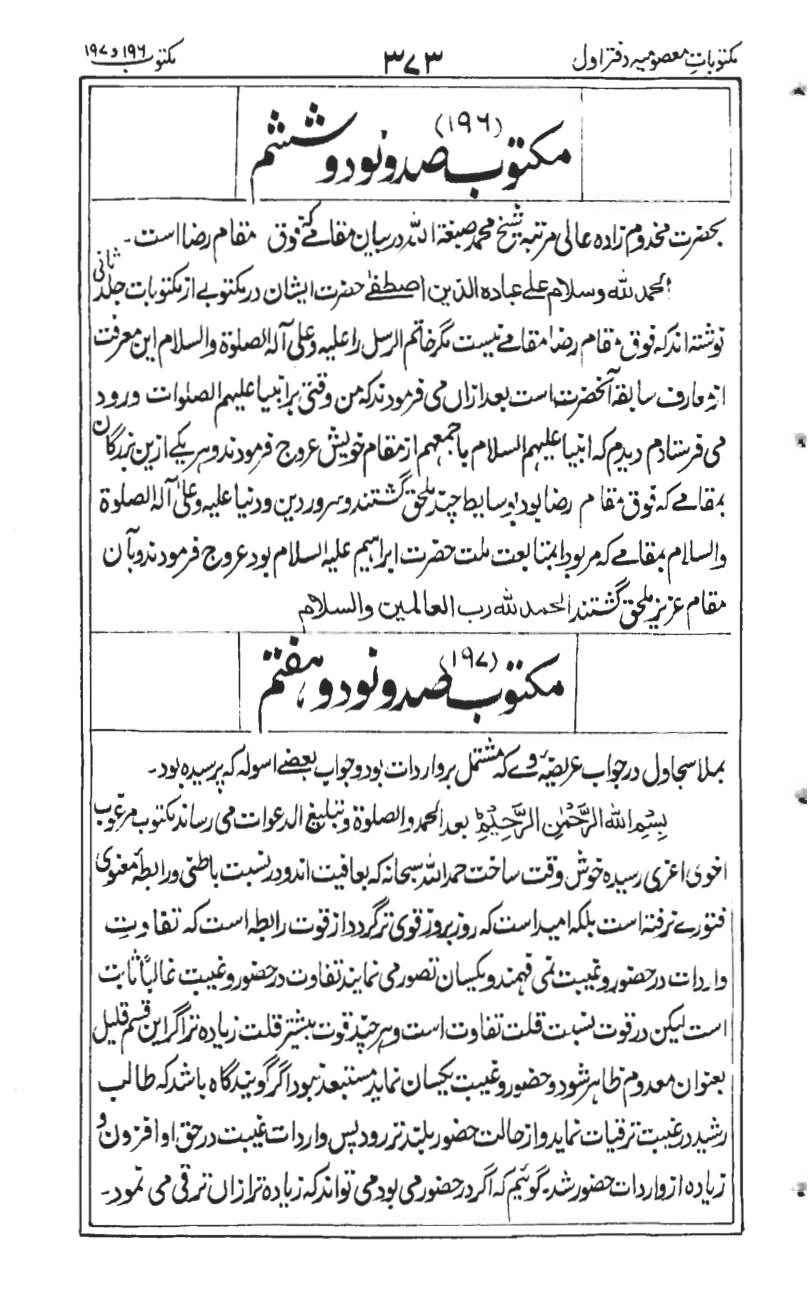 مکتوباتِ معصومیہ دفتر اول ۳۷۳ مکتوب ۱۹۶ و ۱۹۷
مکتوب صد و نود و ششم (۱۹۶)
بحضرت مخدوم زادہ عالی مرتبہ شیخ محمد صبغۃ اللہ در بیان مقامے کہ فوق مقام رضا است۔
الحمد للہ وسلام علی عبادہ الذین اصطفے حضرت ایشان در مکتوبے از مکتوبات جلد ثانی
نوشتہ اند کہ فوق مقام رضا مقامے نیست مگر خاتم الرسل را علیہ وعلی آلہ الصلوۃ والسلام این معرفت
از معارف سابقہ آنحضرت است بعد ازان می فرمودند کہ من وقتی بر انبیا علیہم الصلوات ورود
می فرستادم دیدم کہ انبیا علیہم السلام باجمعہم از مقام خویش عروج فرمودند و ہریکے ازین بزرگان
بمقامے کہ فوق مقام رضا بود بوسایط چند ملحق گشتند و سرور دین و دنیا علیہ وعلی آلہ الصلوۃ
والسلام بمقامے کہ مربود ابمتابعت ملت حضرت ابراہیم علیہ السلام بود عروج فرمودند و بآن
مقام عزیز ملحق گشتند الحمد للہ رب العالمین والسلام
مکتوب صد و نود و ہفتم (۱۹۷)
بملا سجاول در جواب عریضہ وے کہ مشتمل بر واردات بود و جواب بعضے اسولہ کہ پرسیدہ بود۔
بِسْمِ اللہِ الرَّحْمٰنِ الرَّحِیْمِ بعد الحمد والصلوۃ و تبلیغ الدعوات می رساند مکتوب مرغوب
اخوی اعزی رسیدہ خوش وقت ساخت حمد اللہ سبحانہ کہ بعافیت اند و در نسبت باطنی و رابطۂ معنوی
فتورے نرفتہ است بلکہ امید است کہ روز بروز قوی تر گردد از قوت رابطہ است کہ تفاوتِ
واردات در حضور و غیبت نمی فہمند و یکسان تصور می نمایند تفاوت در حضور و غیبت غالباً ثابت
است لیکن در قوت نسبت قلت تفاوت است و ہر چند قوت بیشتر قلت زیادہ تر اگر این قسم قلیل
بعنوان معدوم ظاہر شود و حضور و غیبت یکسان نماید مستبعد نبود اگر گویند گاہ باشد کہ طالب
رشید در غیبت ترقیات نماید و از حالت حضور بلند تر رود پس واردات غیبت در حق او افزون و
زیادہ از واردات حضور شد۔ گوئیم کہ اگر در حضور می بود می تواند کہ زیادہ تر ازان ترقی می نمود۔